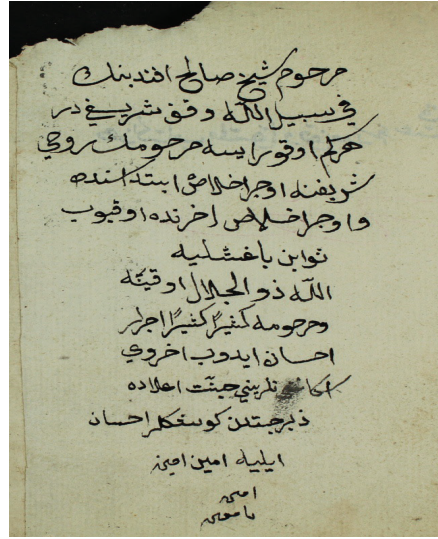 مرحوم شيخ صالح افندينك
في سبيل الله وقف شريفي در
هر كم اوقور ايسه مرحومك روحي
شريفنه اوجر اخلاص ابتداسنده
و اوجر اخلاص اخرنده اوقيوب
ثوابن باغشليه
الله ذو الجلال اوقينه
ومرحومه كثيرًا كثيرًا اجرلر
احسان ايدوب اخروي
جنت اعلاده
احسان
ايليه امين امين
امين
يا معين